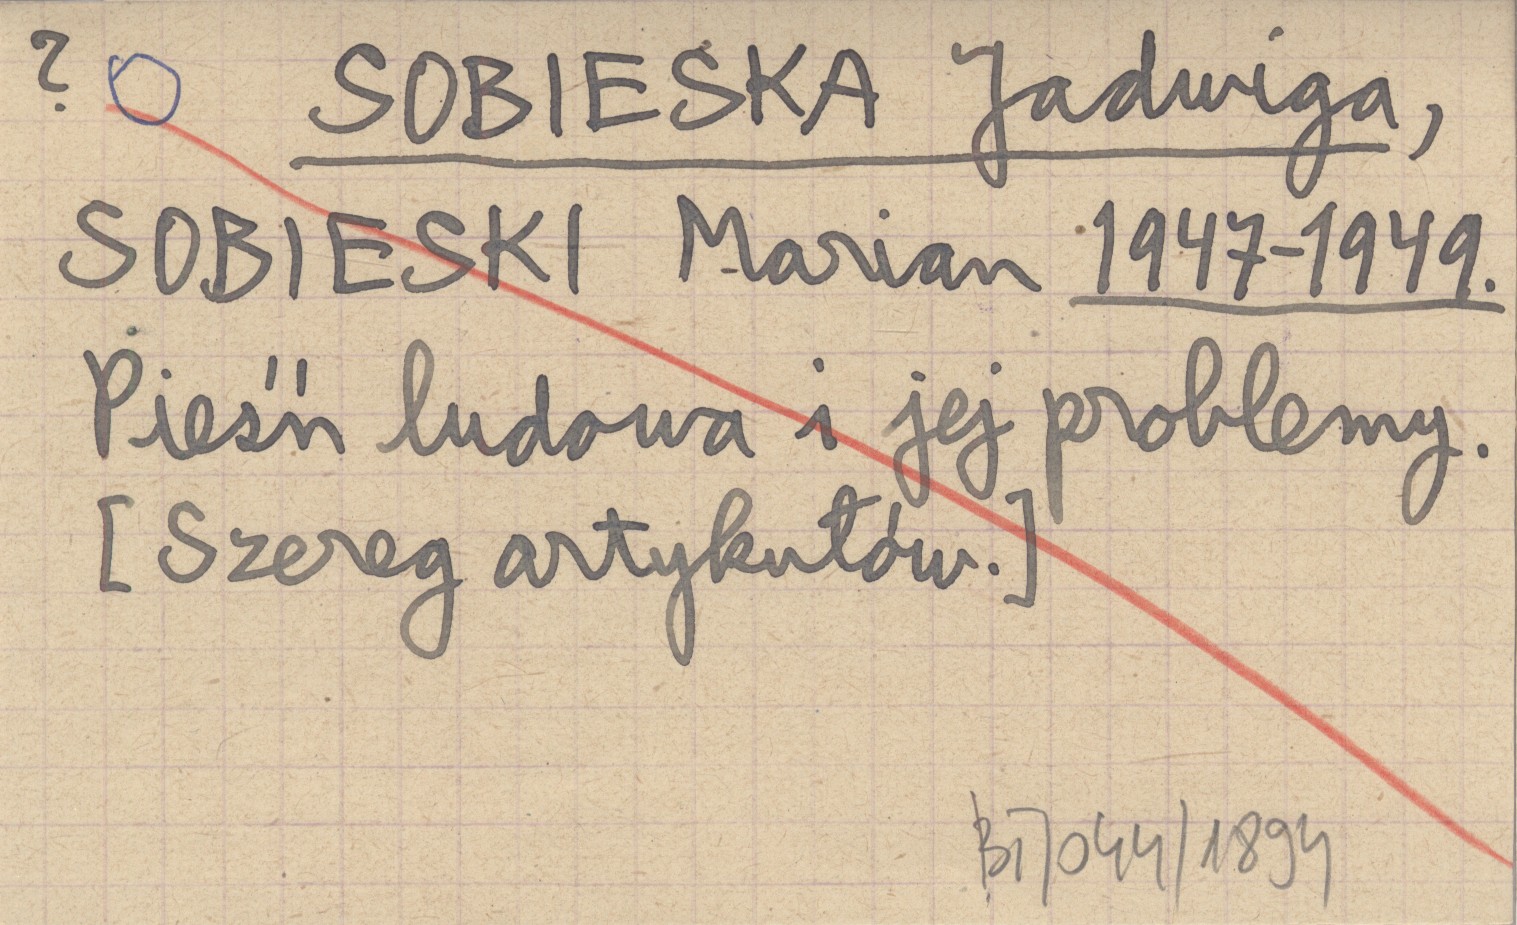 ? SOBIESKA Jadwiga,
SOBIESKI Marian 1947-1949.
Pieśń ludowa i jej problemy.
[Szereg artykułów.]
BI/044/1894